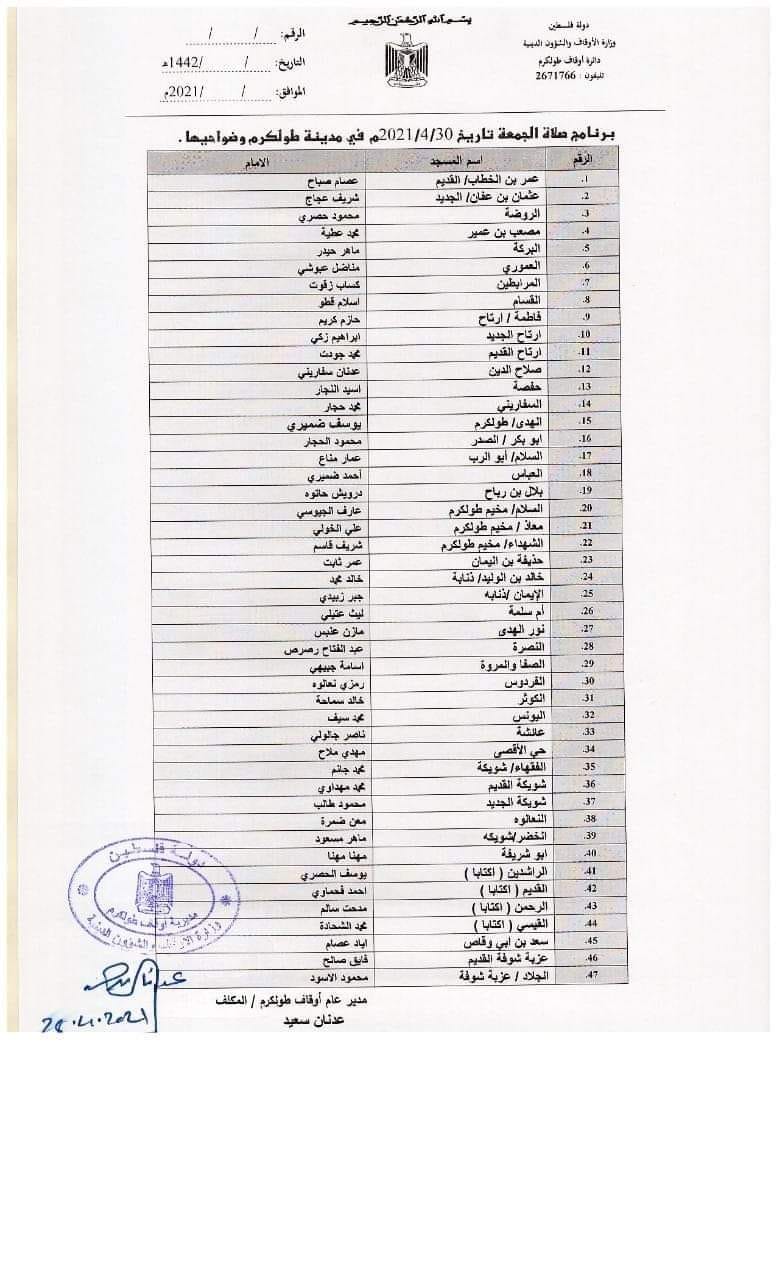 بسم الله الرحمن الرحيم
دولة فلسطين
وزارة الأوقاف والشؤون الدينية
دائرة أوقاف طولكرم
تليفون : 2671766
الرقم: / /
التاريخ: / /1442هـ
الموافق: / /2021م
برنامج صلاة الجمعة تاريخ 2021/4/30م في مدينة طولكرم وضواحيها .
الرقم اسم المسجد الامام
1. عمر بن الخطاب/ القديم عصام صباح
2. عثمان بن عفان/ الجديد شريف عجاج
3. الروضة محمود حصري
4. مصعب بن عمير محمد عطية
5. البركة ماهر حيدر
6. العموري مناضل عبوشي
7. المرابطين كساب زقوت
8. القسام اسلام قطو
9. فاطمة / ارتاح حازم كريم
10. ارتاح الجديد ابراهيم زكي
11. ارتاح القديم محمد جودت
12. صلاح الدين عدنان سفاريني
13. حفصة اسيد النجار
14. السفاريني محمد حجار
15. الهدى/ طولكرم يوسف ضميري
16. ابو بكر / الصدر محمود الحجار
17. السلام/ أبو الرب عمار مناع
18. العباس أحمد ضميري
19. بلال بن رباح درويش حانوه
20. السلام/ مخيم طولكرم عارف الجيوسي
21. معاذ / مخيم طولكرم علي الخولي
22. الشهداء/ مخيم طولكرم شريف قاسم
23. حذيفة بن اليمان عمر ثابت
24. خالد بن الوليد/ ذنابة خالد محمد
25. الإيمان /ذنابه جبر زبيدي
26. أم سلمة ليث عتيلي
27. نور الهدى مازن عنبس
28. النصرة عبد الفتاح رصرص
29. الصفا والمروة اسامة جبيهي
30. الفردوس رمزي نعالوه
31. الكوثر خالد سماحة
32. اليونس محمد سيف
33. عائشة ناصر جالولي
34. حي الأقصى مهدي ملاح
35. الفقهاء/ شويكة محمد جانم
36. شويكة القديم محمد مهداوي
37. شويكة الجديد محمود طالب
38. النعالوه معن ضمرة
39. الخضر/شويكه ماهر مسعود
40. ابو شريفة مهنا مهنا
41. الراشدين ( اكتابا ) يوسف الحصري
42. القديم ( اكتابا ) احمد قحماوي
43. الرحمن ( اكتابا ) مدحت سالم
44. القيسي ( اكتابا ) محمد الشحادة
45. سعد بن ابي وقاص اياد عصام
46. عزبة شوفة القديم فايق صالح
47. الجلاد / عزبة شوفة محمود الاسود
دولة فلسطين
مديرية أوقاف طولكرم
وزارة الأوقاف والشؤون الدينية
مدير عام أوقاف طولكرم / المكلف
عدنان سعيد
28.4.2021